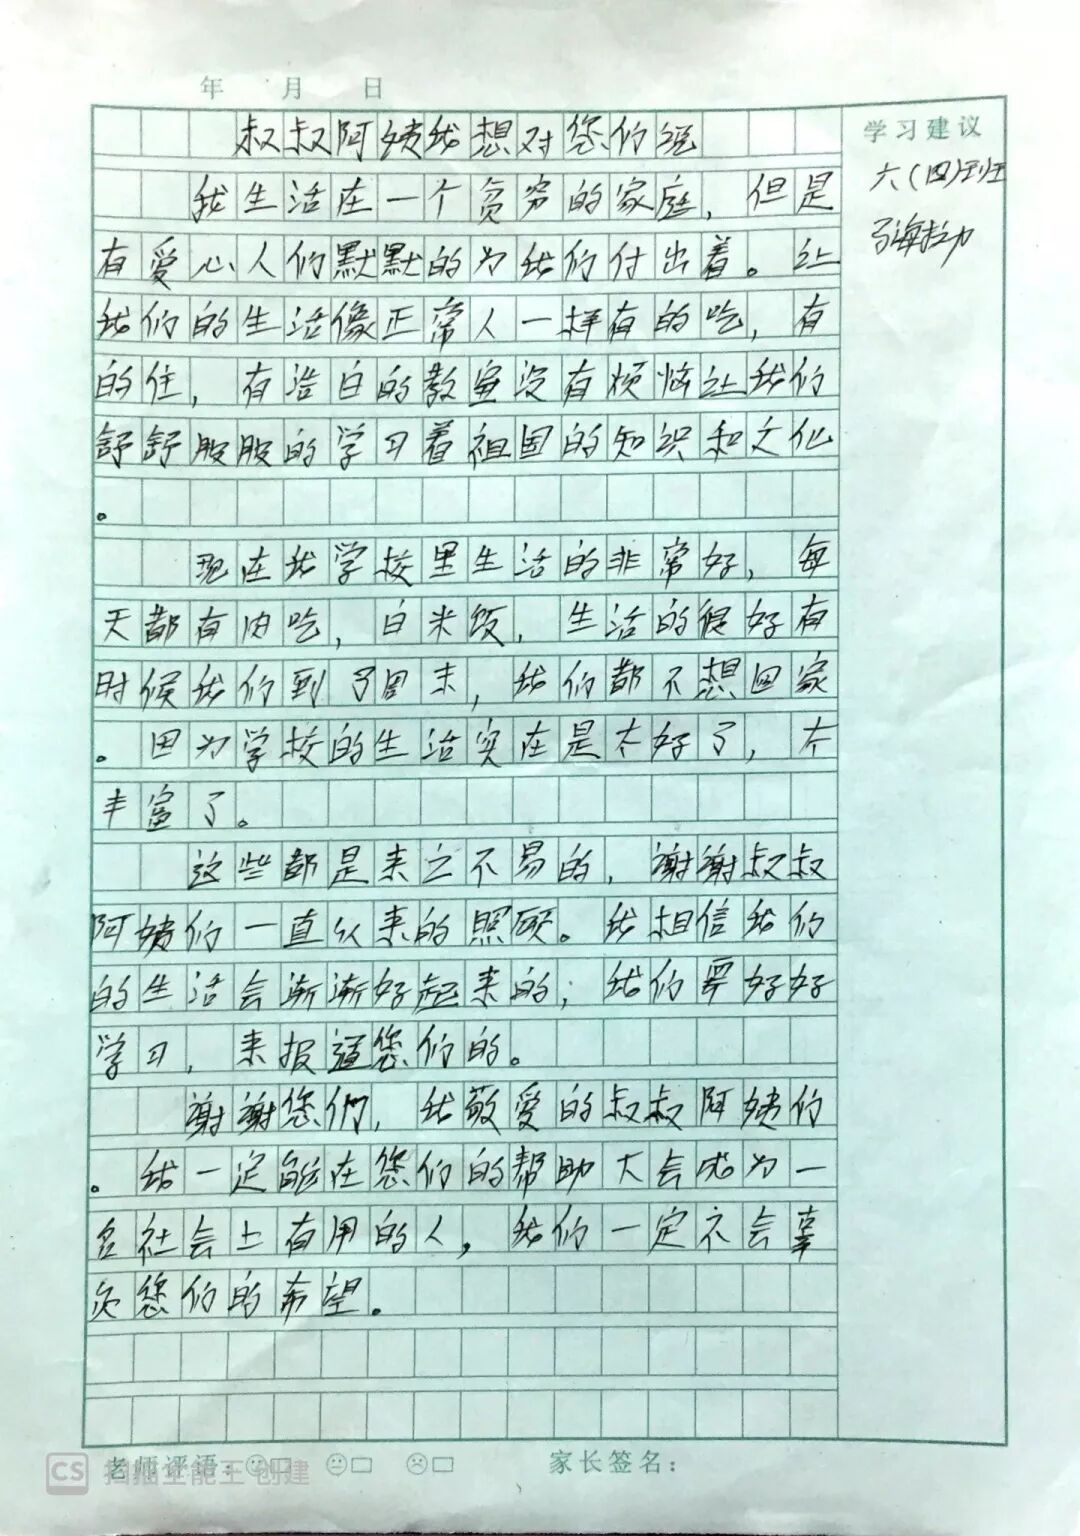 年 月 日
叔叔阿姨我想对您们说
学习建议
六(四)班
海拉
我生活在一个贫穷的家庭，但是
有爱心人们默默的为我们付出着。让
我们的生活像正常人一样有的吃，有
的住，有洁白的教室没有烦恼让我们
舒舒服服的学习着祖国的知识和文化
。
现在我学校里生活的非常好，每
天都有肉吃，白米饭，生活的很好有
时候我们到了周末，我们都不想回家
。因为学校的生活实在是太好了，太
丰富了。
这些都是来之不易的，谢谢叔叔
阿姨们一直以来的照顾。我相信我们
的生活会渐渐好起来的；我们要好好
学习，来报道您们的。
谢谢您們，我敬爱的叔叔阿姨们
。我一定能在您们的帮助大会成为一
名社会上有用的人，我们一定不会辜
负您们的希望。
老师评语：
家长签名：
CS 扫描全能王 创建